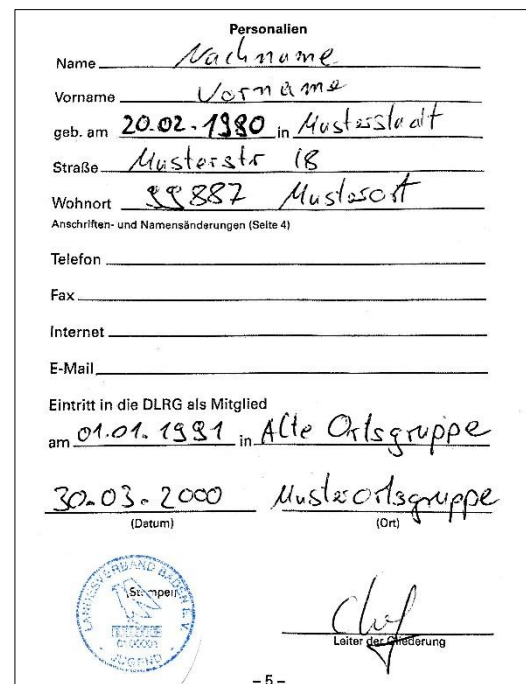 Personalien
Name Nachname
Vorname Vorname
geb. am 20.02.1980 in Musterstadt
Straße Musterstr 18
Wohnort 99887 Musterort
Anschriften- und Namensänderungen (Seite 4)
Telefon
Fax
Internet
E-Mail
Eintritt in die DLRG als Mitglied
am 01.01.1991 in Alte Ortsgruppe
30.03.2000 Musterortsgruppe
(Datum) (Ort)
LANDESVERBAND BADEN E.V.
(Stempel)
0100001
JUGEND
Chef
Leiter der Gliederung
– 5 –